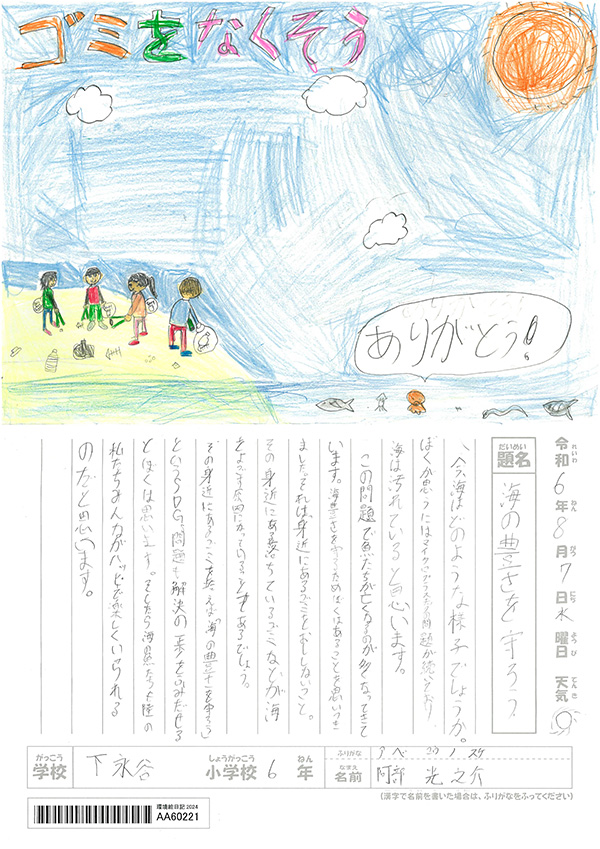 ゴミをなくそう
ありがとう!
令和6年8月7日水曜日 天気
れいわ ねん がつ にち ようび てんき
だいめい
題名
海の豊さを守ろう
今海はどのような様子でしょうか。
ぼくが思うにはマイクロプラスチック問題が続いており
海は汚れていると思います。
この問題で魚たちが亡くなるのが多くなってきて
います。海の豊さを守るためぼくはあることを思いつき
ました。それは、身近にあるゴミをなくしないこと。
その身近にある落ちているゴミなどが海
をよごす原因になっていることもあるでしょう。
その身近にあるゴミを拾えば「海の豊さを守ろう」
というSDGs問題も解決の一歩をふみだせる
とぼくは思います。そしたら海の魚たちも陸の
私たちみんながハッピーで楽しくいられる
のだと思います。
がっこう しょうがっこう ねん
学校 下永谷 小学校 6年
ふりがな アベ コウノスケ
なまえ
名前 阿部 光之介
(漢字で名前を書いた場合は、ふりがなをふってください)
環境絵日記2024
AA60221